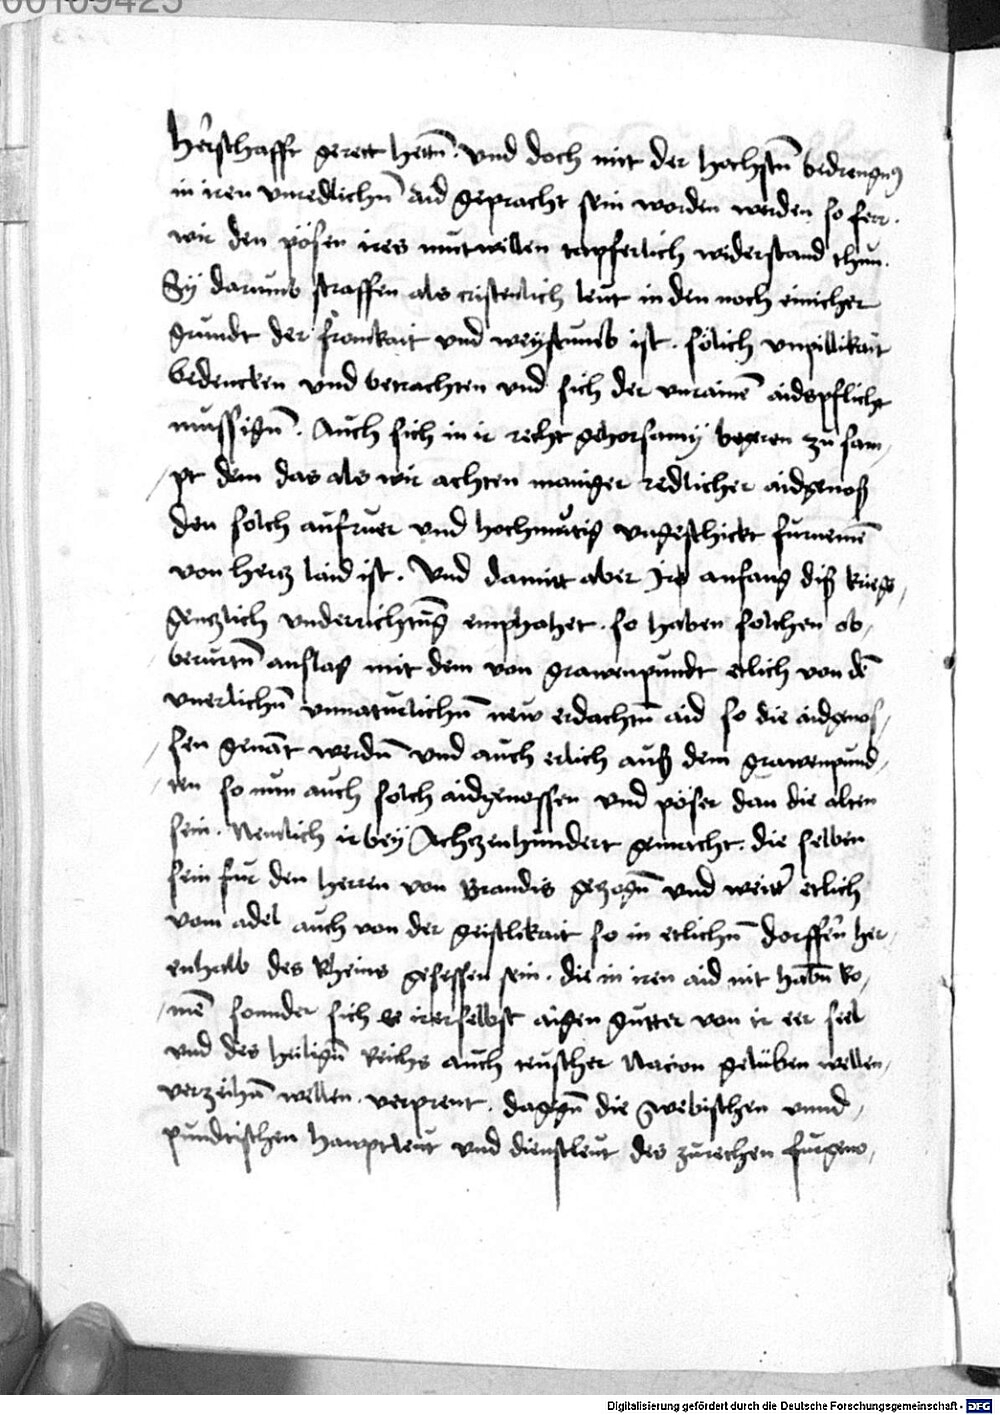 00109425
herschafft gerett hettn̄. und doch mit der hochstn̄ bedrengnȝ
in iren unredlichn̄ aid gepracht sein worden werden so ferr.
wir den pösen ires mutwillen tapferlich widerstand thun.
Sÿ darumb straffen als cristenlich leut in den noch einicher
grundt der fromkait und weystumb ist. sölich unpillikait
bedencken und betrachten und sich der unrainē aidspflicht
mussign̄. Auch sich in ir recht gehorsamÿ begeren zu sam/
/pt dem das als wir achten maniger redlicher aidgenoß
den solch aufruer und hochmutig ungeschickt furnemē
von hertz laid ist. Und damitt aber Ir anfang diß kriegs/
gentzlich underrichtūg emphahet. so haben solchen ob/
/berurtn̄ anslag mit dem von grawenpundt etlich von dē
unerlichn̄ unnaturlichn̄ new erdachtn̄ aid so die aidgnos/
/sen genāt werdn̄ und auch etlich auß dem grawenpund/
/ten so nun auch solch aidgenossen und pöser dan die alten
sein. Nemlich ir bey Achtzenhundert gemacht. die selben
sein fur den herren von Brandis gezogn̄ und weitt' etlich
vom adel auch von der geistlikait so in etlichn̄ dorffern her/
enhalb des Rheins gesessen sein. die in iren aid nit habn̄ ko/
/mē sonnder sich ee ir selbst aigen gutter von ir eer seel
und des heilign̄ Reichs auch teutscher Nacion gelüben wellen/
verzeihn̄ wellen. verprent. daggn̄ die swebischen unnd/
pundtischen hawptleut und dienstleut des zurechen furgeno/
Digitalisierung gefördert durch die Deutsche Forschungsgemeinschaft - DFG